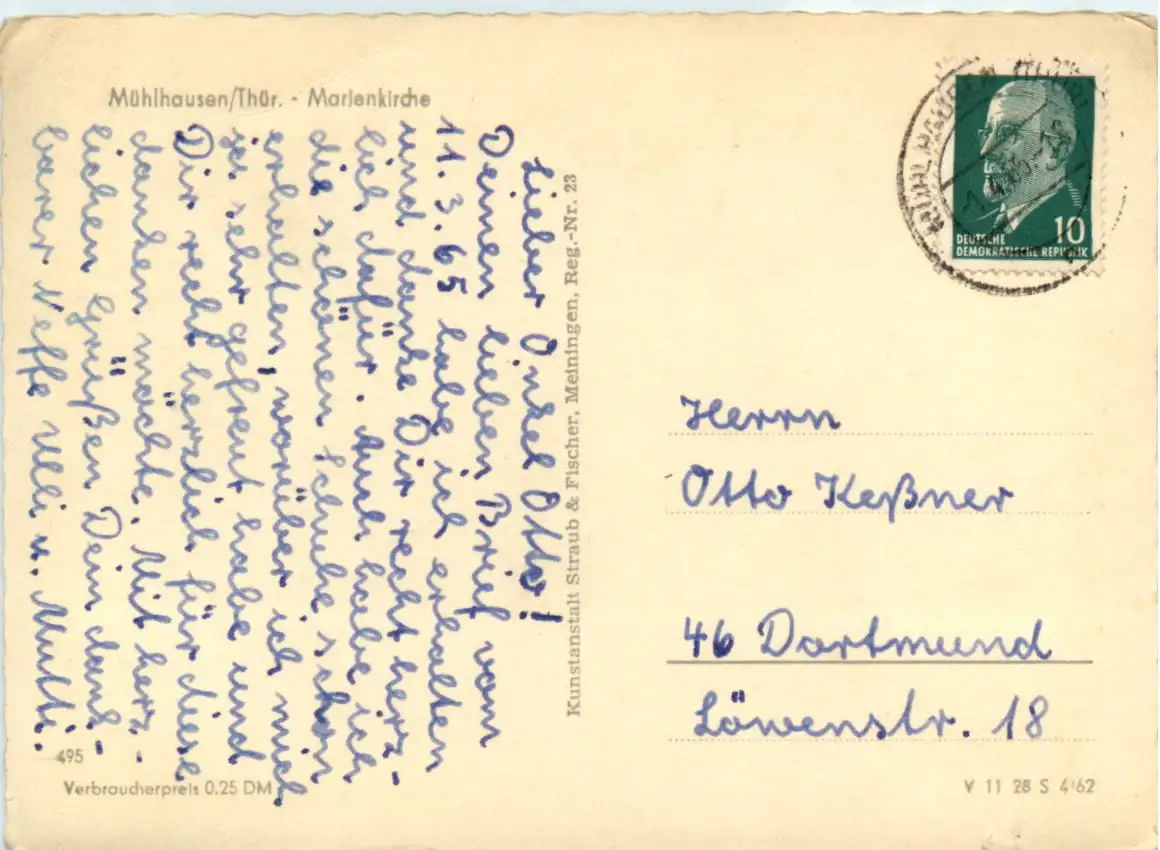 Mühlhausen/Thür. - Marienkirche
Lieber Onkel Otto!
Deinen lieben Brief vom
11. 3. 65 habe ich erhalten
und danke Dir recht herz-
lich dafür. Auch habe ich
die schönen Schuhe schon
erhalten, worüber ich mich
ja sehr gefreut habe und
Dir recht herzlich für diese
danken möchte. Mit herz-
lichen Grüßen Dein dank-
barer Neffe Ulli u. Mutti.
495
Verbraucherpreis 0,25 DM
Kunstanstalt Straub & Fischer, Meiningen, Reg.-Nr. 23
MÜHLHAUSEN
10
DEUTSCHE
DEMOKRATISCHE REPUBLIK
Herrn
Otto Keßner
46 Dortmund
Löwenstr. 18
V 11 28 S 4/62